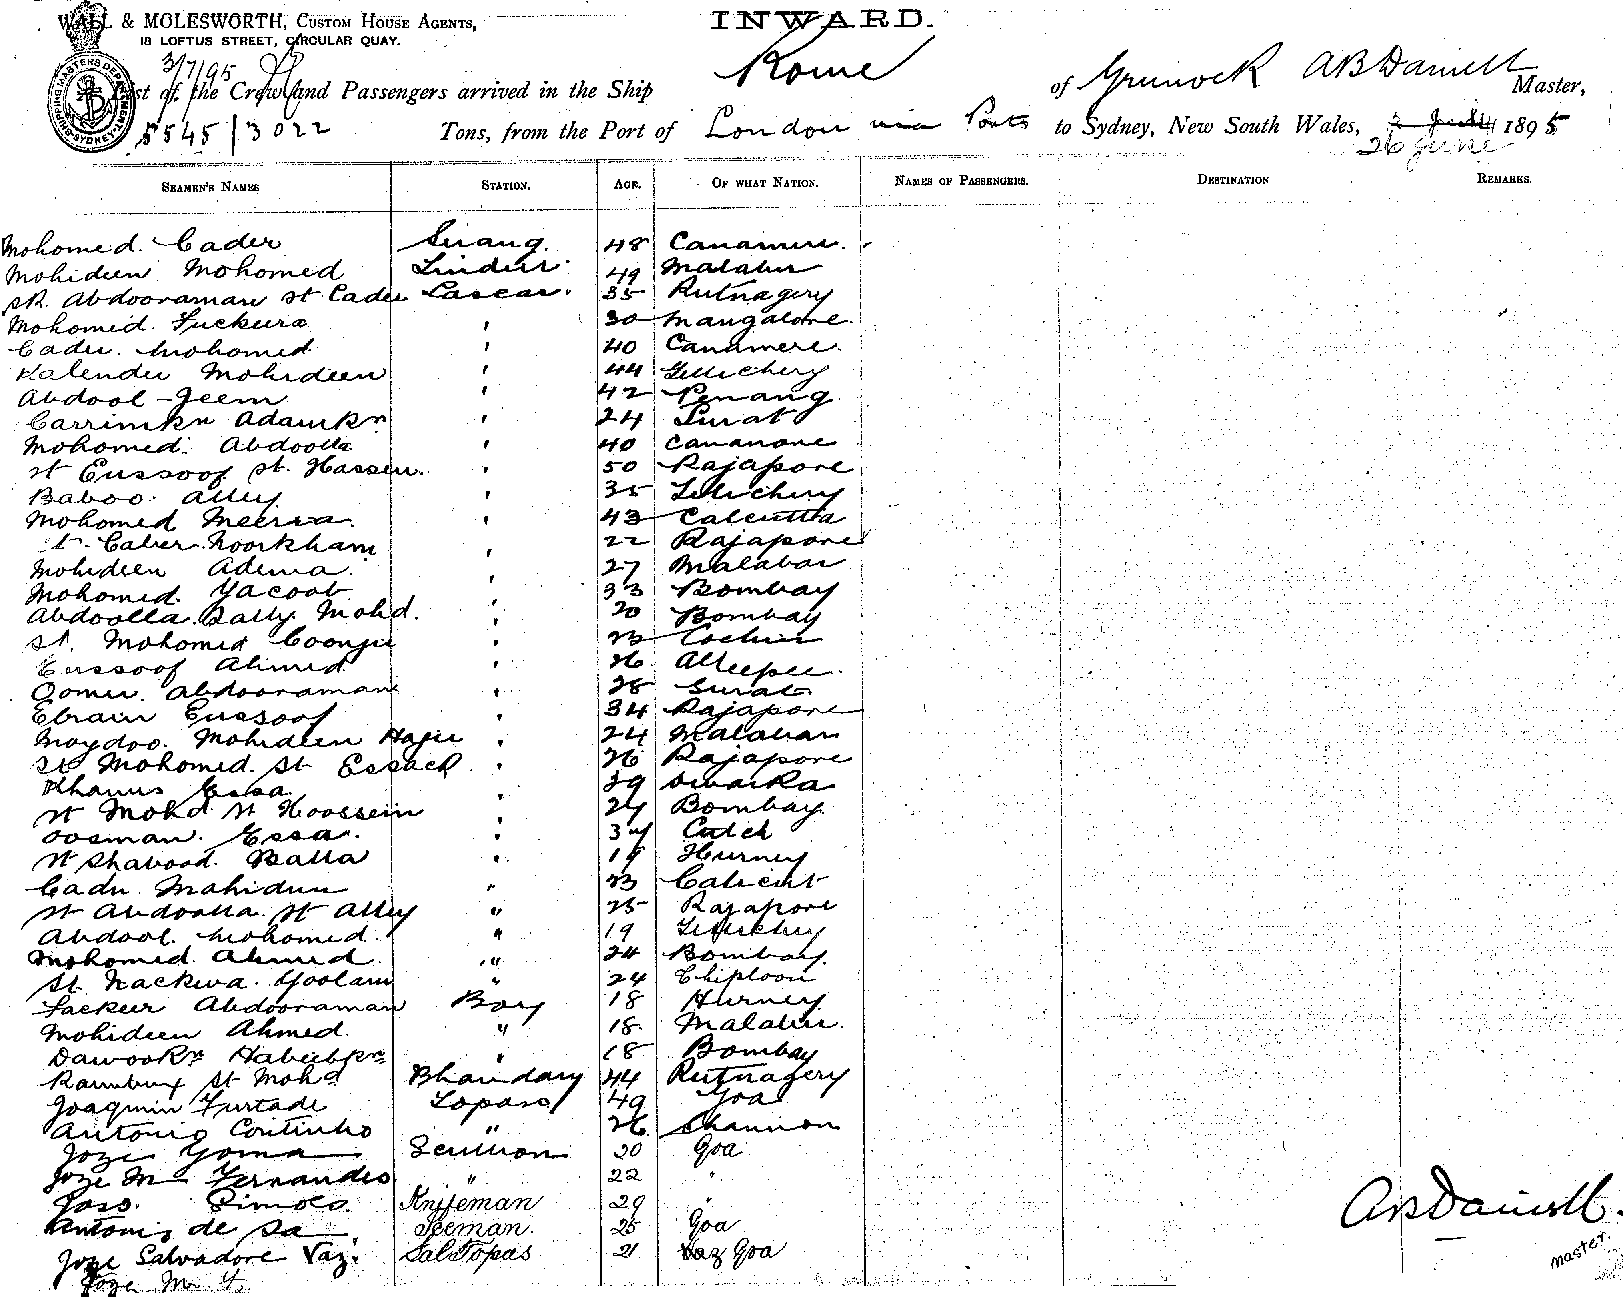 WALL & MOLESWORTH, CUSTOM HOUSE AGENTS,
18 LOFTUS STREET, CIRCULAR QUAY.
INWARD.
3/7/95
List of the Crew and Passengers arrived in the Ship Rome of Greenock A B Daniell Master,
5545 / 3022 Tons, from the Port of London via Ports to Sydney, New South Wales, 3 July 1895
26 June
SEAMEN'S NAMES STATION. AGE. OF WHAT NATION. NAMES OF PASSENGERS. DESTINATION REMARKS.
Mohomed Cader Serang 48 Canamere
Mohideen Mohomed 49 Malabar
Abdooraman St Cader Lascar 35 Rutnagery
Mohomed 30 Mangalore
Cader Mohomed 40 Canamere
Kalender Mohideen 44 Tellichery
Abdool Jeem 42 Penang
24 Surat
Mohomed Abdoolla 40 Cananore
St Eussoof St. Hassen 50 Rajapore
Baboo Alley 35 Tellichery
Mohomed Meerva 43 Calcutta
Noorkham 22 Rajapore
Mohideen Adema 27 Malabar
Mohomed Yacoob 33 Bombay
Abdoolla Bally Mohd. 20 Bombay
St. Mohomed Coonjee 23 Cochin
Eussoof Ahmed 26 Alleepee
Oomer Abdooraman 28 Surat
Ebraim Eussoof 34 Rajapore
Moydoo Mohideen Hajie 24 Malabar
St Mohomed St Essack 26 Rajapore
Essa 39 Dwarka
St Mohd St Hoossein 27 Bombay
Oosman Essa 37 Cutch
St Shabood Balla 19 Hurney
Cader Mahideen 23 Calicut
St Abdoolla St Alley " 25 Rajapore
Abdool Mohomed " 19 Tellichery
Mohomed Ahmed " 24 Bombay
St Nackwa Goolam " 24 Chiploon
Fackeer Abdooraman Boy 18 Hurney
Mohideen Ahmed " 18 Malabar
" 18 Bombay
Rambux St Mohd Bhandary 44 Rutnagery
Joaquim Furtado Topass 49 Goa
Antonio Coutinho " 26 Shannon
Joze Goma Scullion 20 Goa
Joze M Fernandes " 22 "
Simoes Knifeman 29 "
Antonio de Sa 25 Goa
Joze Salvadore Vaz. Sal Topas 21 Goa
Joze M
A B Daniell
master.